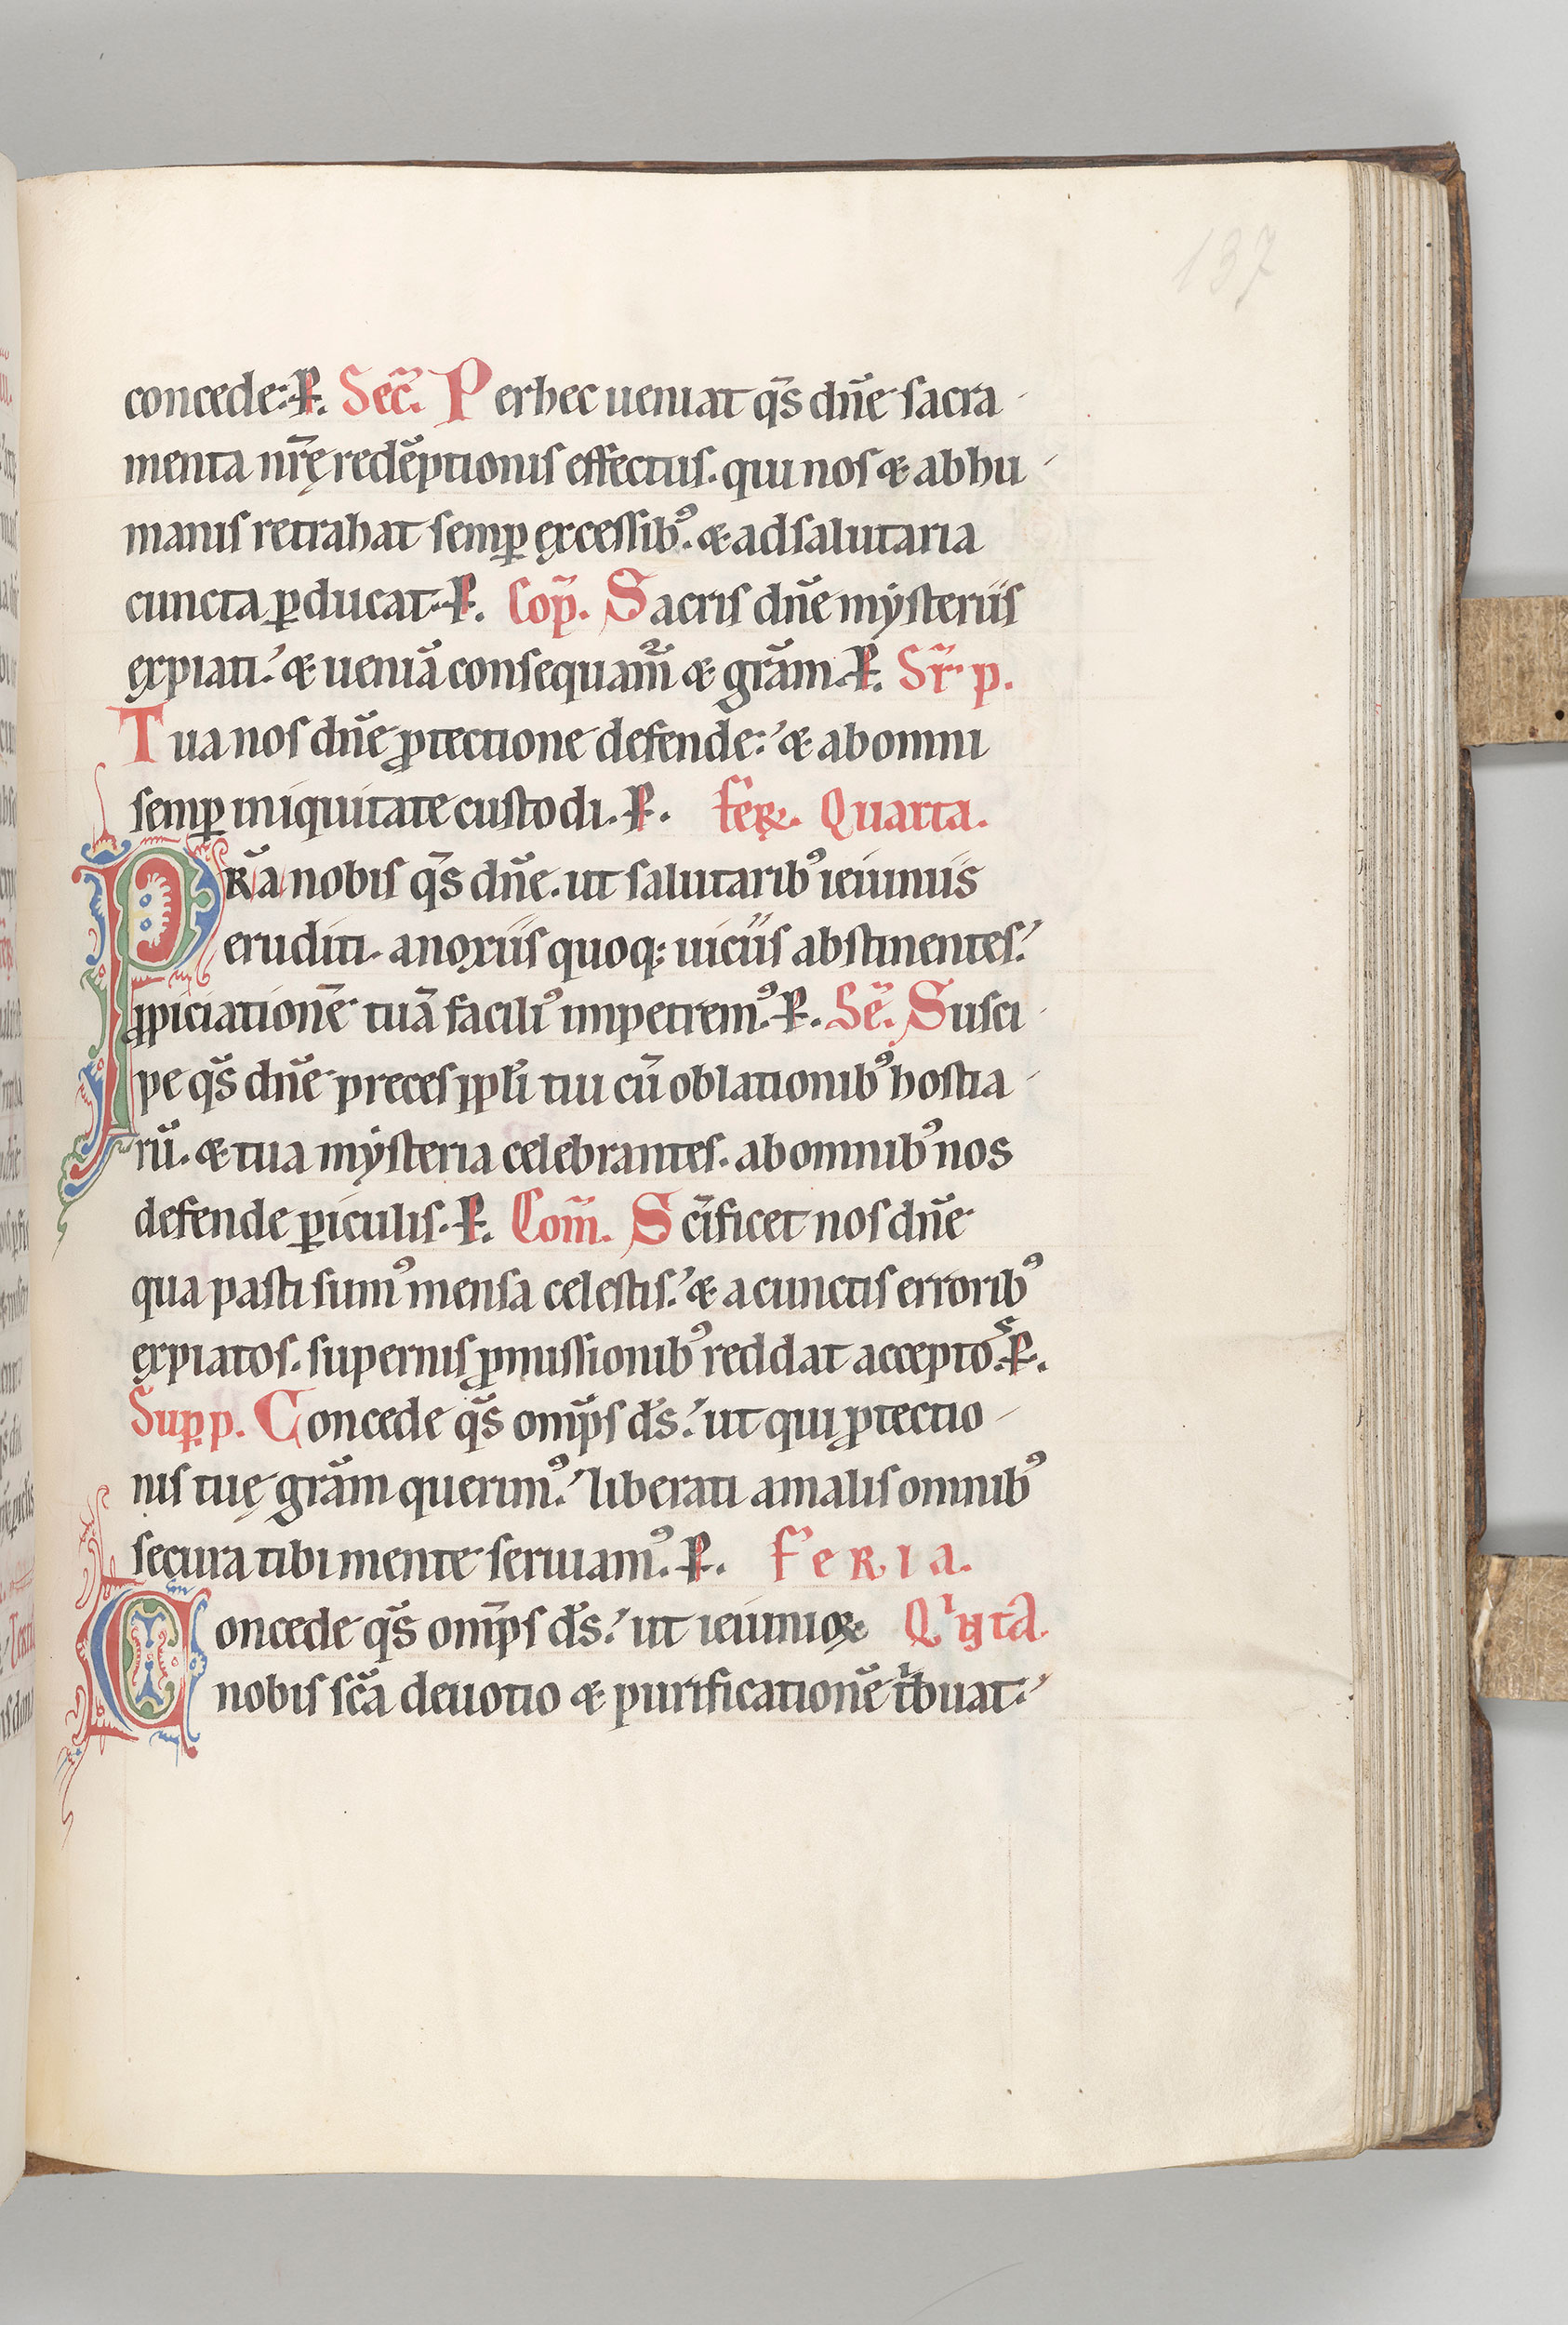 137
concede: P. Sec̄. Per hec ueniat q̄s dn̄e sacra-
menta nr̄ę redēptionis effectus. qui nos & ab hu-
manis retrahat semꝑ excessibꝰ. & ad salutaria
cuncta ꝑducat. P. Cop̄. Sacris dn̄e mẏsteriis
expiati. & ueniā consequam̄ & grām. P. Sr̄ p.
Tua nos dn̄e ꝓtectione defende: & ab omni
semꝑ iniquitate custodi. P. Feꝝ. Quarta.
PRā nobis q̄s dn̄e. ut salutaribꝰ ieiuniis
eruditi. a noxiis quoq; uiciis abstinentes.
ꝓpiciationē tuā faciliꝰ impetremꝰ. P. Sē. Susci-
pe q̄s dn̄e preces ppl̄i tui cū oblationibꝰ hostia-
rū. & tua mẏsteria celebrantes. ab omnibꝰ nos
defende ꝑiculis. P. Com̄. Sc̄ificet nos dn̄e
qua pasti sumꝰ mensa celestis. & a cunctis erroribꝰ
expiatos. supernis ꝓmissionibꝰ reddat acceptos. P.
Suꝑ p. Concede q̄s omp̄s ds̄. ut qui ꝓtectio-
nis tuę grām querimꝰ. liberati a malis omnibꝰ
secura tibi mente seruiamꝰ. P. FeRia.
Concede q̄s omp̄s ds̄. ut ieiunioꝝ Qinta.
nobis sc̄a deuotio & purificationē tͥbuat.